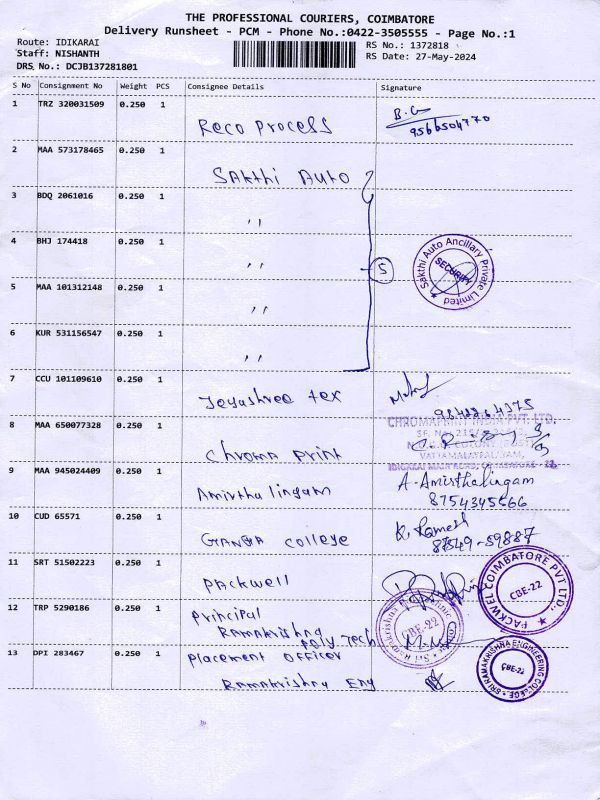 THE PROFESSIONAL COURIERS, COIMBATORE
Delivery Runsheet - PCM - Phone No.:0422-3505555 - Page No.:1
Route: IDIKARAI
Staff: NISHANTH
DRS No.: DCJB137281801
RS No.: 1372818
RS Date: 27-May-2024
S No Consignment No Weight PCS Consignee Details Signature
1 TRZ 320031509 0.250 1 Reco process B.G 9566504770
2 MAA 573178465 0.250 1 Sakthi Auto
3 BDQ 2061016 0.250 1 ,,
4 BHJ 174418 0.250 1 ,,
5
Sakthi Auto Ancillary Private Limited
SECURITY
5 MAA 101312148 0.250 1 ,,
6 KUR 531156547 0.250 1 ,,
7 CCU 101109610 0.250 1 Jeyashree tex
8 MAA 650077328 0.250 1 chroma print
CHROMAPRINT INDIA PVT. LTD.
9 MAA 945024409 0.250 1 Amirtha lingam A-Amirthalingam
8754345666
10 CUD 65571 0.250 1 GANGA college K. Ramesh
87549-59887
11 SRT 51502223 0.250 1 packwell
PACKWEL COIMBATORE PVT LTD.,
CBE-22
12 TRP 5290186 0.250 1 principal
Ramakrishna poly tech
CBE-22
13 DPI 283467 0.250 1 placement officer
Ramakrishna Eng
SRI RAMAKRISHNA ENGINEERING COLLEGE
CBE-22